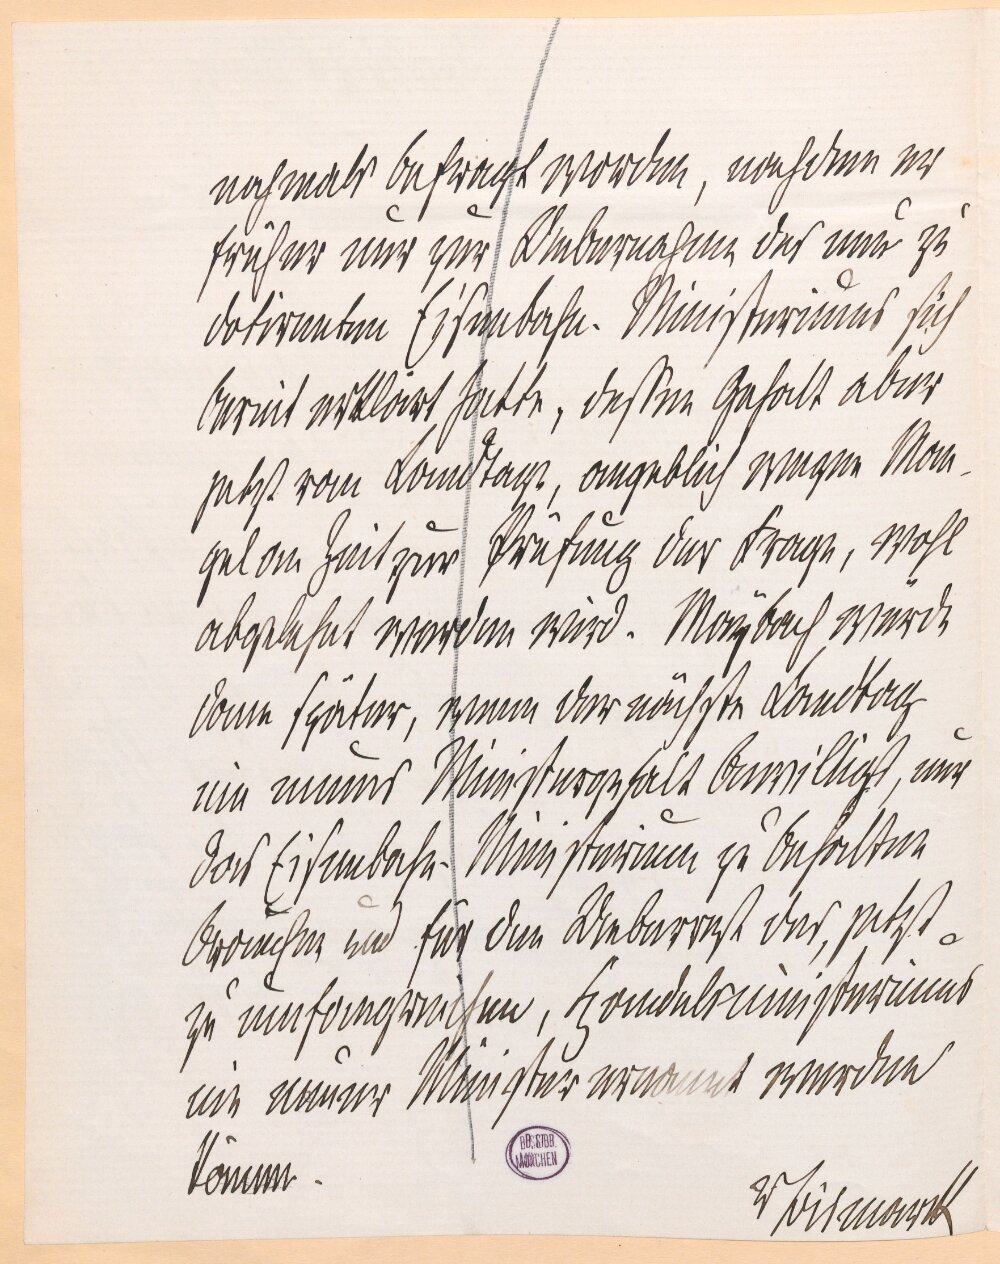 nochmals befragt worden, nachdem er
früher nur zur Uebernahme des neu zu
dotirenden Eisenbahn-Ministeriums sich
bereit erklärt hatte, dessen Gehalt aber
jetzt vom Landtage, angeblich wegen Man-
gel an Zeit zur Prüfung der Frage, wohl
abgelehnt werden wird. Maybach würde
dann später, wenn der nächste Landtag
ein neues Ministergehalt bewilligt, nur
das Eisenbahn-Ministerium zu behalten
brauchen und für den Ueberrest des, jetzt
zu umfangreichen, Handelsministeriums
ein neuer Minister ernannt werden
können.
v Bismarck
BAY. STAATS-
MÜNCHEN